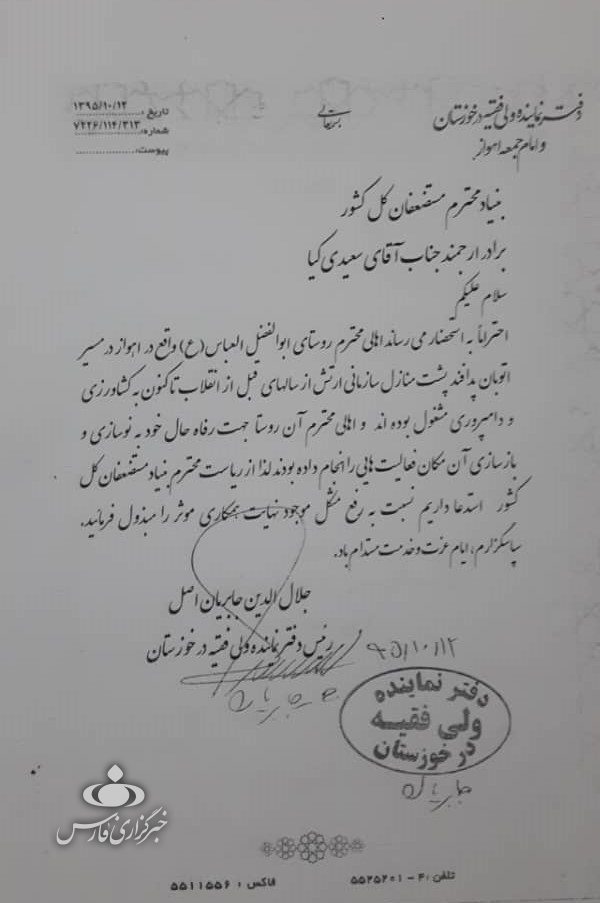 بسمه تعالی
دفتر نماینده ولی فقیه در خوزستان
و امام جمعه اهواز
تاریخ: ۱۳۹۵/۱۰/۱۲
شماره: ۷۲۲۶/۱۱۴/۳۱۳
پیوست:
بنیاد محترم مستضعفان کل کشور
برادر ارجمند جناب آقای سعیدی کیا
سلام علیکم
احتراماً به استحضار می رساند اهالی محترم روستای ابوالفضل العباس(ع) واقع در اهواز در مسیر
اتوبان پدافند پشت منازل سازمانی ارتش از سالهای قبل از انقلاب تاکنون به کشاورزی
و دامپروری مشغول بوده اند و اهالی محترم آن روستا جهت رفاه حال خود به نوسازی و
بازسازی آن مکان فعالیت هایی را انجام داده بودند لذا از ریاست محترم بنیاد مستضعفان کل
کشور استدعا داریم نسبت به رفع مشکل موجود نهایت همکاری موثر را مبذول فرمائید.
سپاسگزارم، ایام عزت و خدمت مستدام باد.
جلال الدین جابریان اصل
رئیس دفتر نماینده ولی فقیه در خوزستان
۹۵/۱۰/۱۲
جابریان
دفتر نماینده
ولی فقیه
در خوزستان
جابریان
خبرگزاری فارس
تلفن: ۴ - ۵۵۲۵۲۰۱
فاکس: ۵۵۱۱۵۵۶